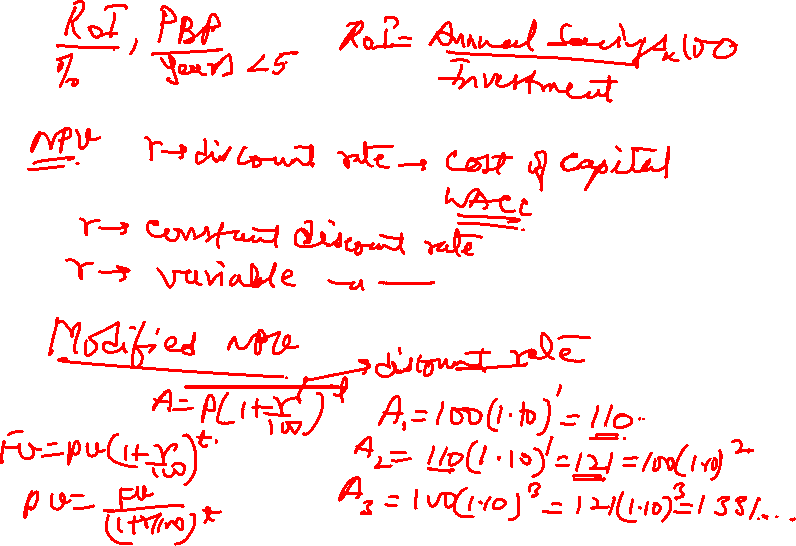 RoI/%, PBP/years <5
RoI = Annual Savings x 100 / Investment
NPV r→discount rate → cost of capital
WACC
r→ constant discount rate
r→ variable —〃—
Modified NPV
→discount rate
A = P(1+r/100)^t
A₁ = 100(1.10)^1 = 110.
FV = PV(1+r/100)^t.
A₂ = 110(1.10)^1 = 121 = 100(1.10)^2
PV = FV/(1+r/100)^t
A₃ = 100(1.10)^3 = 121(1.10)^3 = 1331...